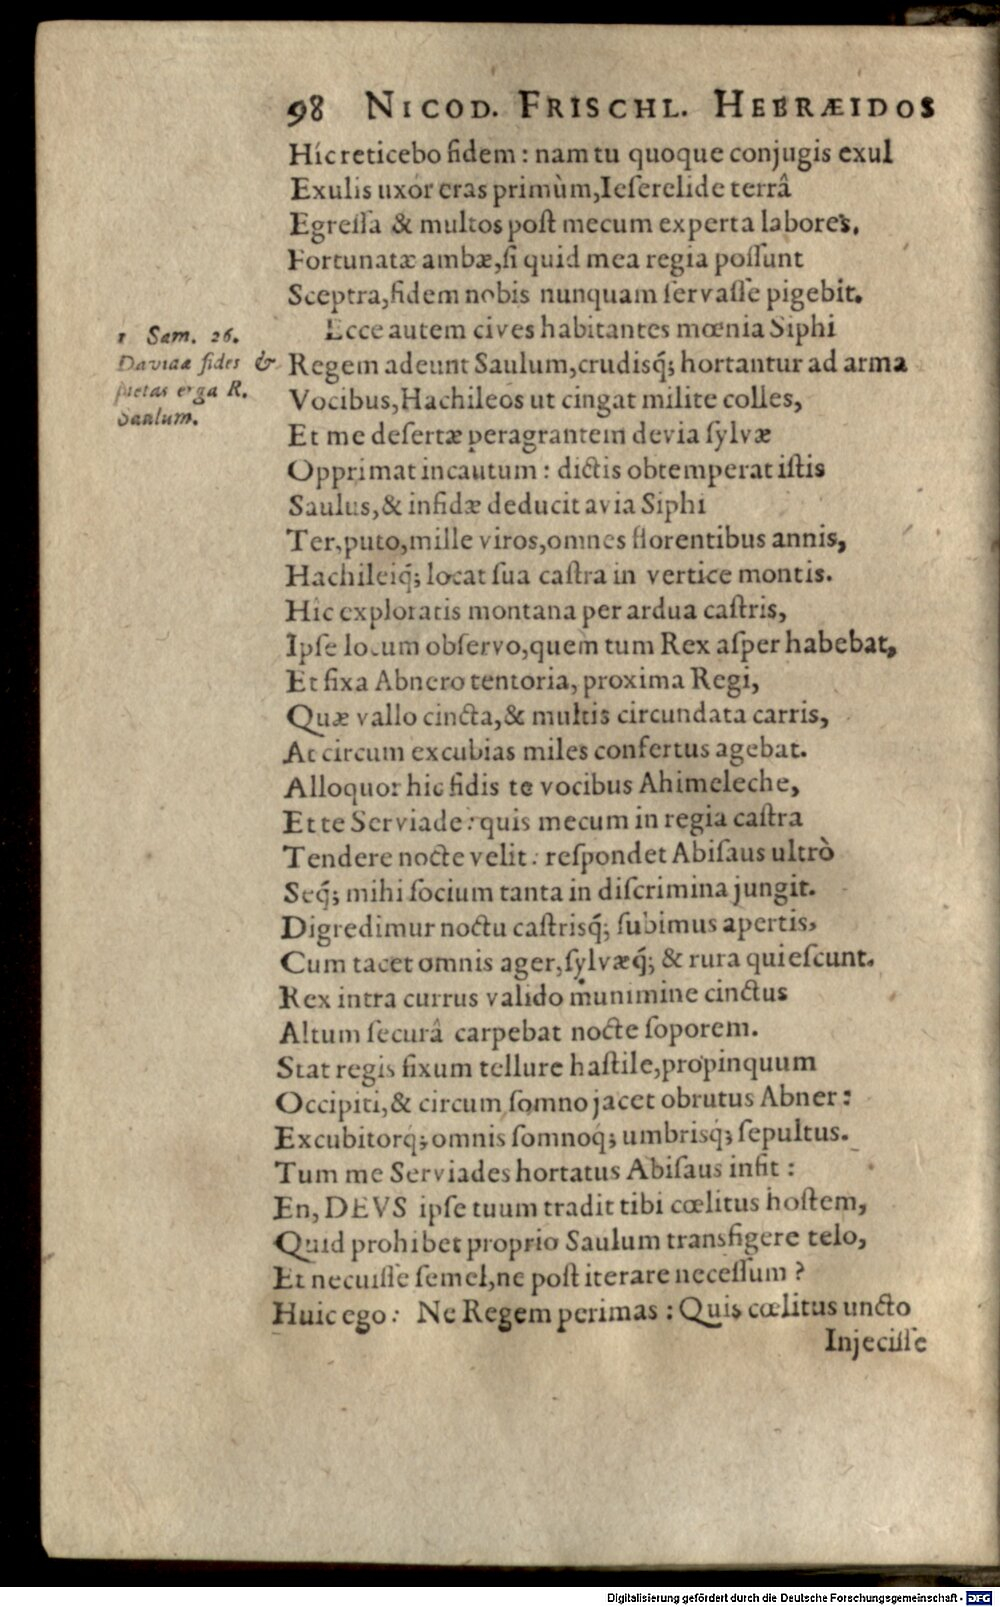 98 NICOD. FRISCHL. HEBRÆIDOS
Híc reticebo fidem : nam tu quoque conjugis exul
Exulis uxor eras primùm, Ieſerelide terrâ
Egreſſa & multos poſt mecum experta labores.
Fortunatæ ambæ, ſi quid mea regia poſſunt
Sceptra, fidem nobis nunquam ſervaſſe pigebit.
1 Sam. 26.
Davidis fides &
pietas erga R.
Saulum.
Ecce autem cives habitantes mœnia Siphi
Regem adeunt Saulum, crudisq́; hortantur ad arma
Vocibus, Hachileos ut cingat milite colles,
Et me deſertæ peragrantem devia ſylvæ
Opprimat incautum : dictis obtemperat iſtis
Saulus, & infidæ deducit avia Siphi
Ter, puto, mille viros, omnes florentibus annis,
Hachileiq́; locat ſua caſtra in vertice montis.
Hic exploratis montana per ardua caſtris,
Ipſe locum obſervo, quem tum Rex aſper habebat,
Et fixa Abnero tentoria, proxima Regi,
Quæ vallo cincta, & multis circundata carris,
At circum excubias miles confertus agebat.
Alloquor hic fidis te vocibus Ahimeleche,
Et te Serviade : quis mecum in regia caſtra
Tendere nocte velit : reſpondet Abiſaus ultrò
Seq́; mihi ſocium tanta in diſcrimina jungit.
Digredimur noctu caſtrisq́; ſubimus apertis,
Cum tacet omnis ager, ſylvæq́; & rura quieſcunt.
Rex intra currus valido munimine cinctus
Altum ſecurâ carpebat nocte ſoporem.
Stat regis fixum tellure haſtile, propinquum
Occipiti, & circum ſomno jacet obrutus Abner :
Excubitorq́; omnis ſomnoq́; umbrisq́; ſepultus.
Tum me Serviades hortatus Abiſaus infit :
En, DEVS ipſe tuum tradit tibi cœlitus hoſtem,
Quid prohibet proprio Saulum transfigere telo,
Et necuiſſe ſemel, ne poſt iterare neceſſum ?
Huic ego : Ne Regem perimas : Quis cœlitus uncto
Injeciſſe
Digitalisierung gefördert durch die Deutsche Forschungsgemeinschaft - DFG